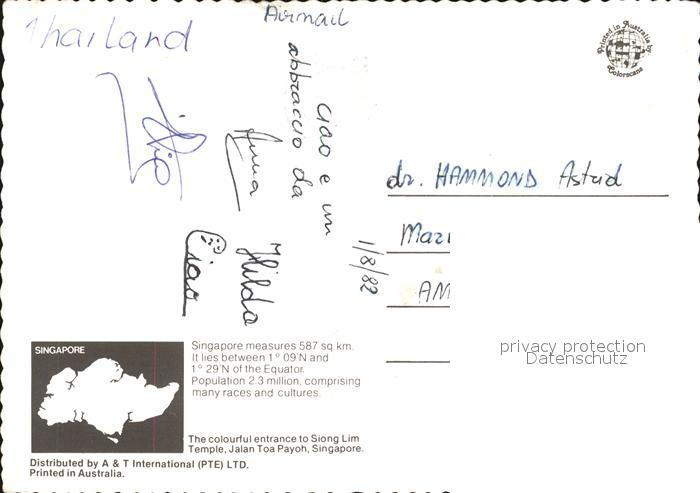 Airmail
Thailand
Printed in Australia by
Colorscans
Ciao e un
abbraccio da
Anna
Hilda
Ciao
1/8/82
dr. HAMMOND Astrid
privacy protection
Datenschutz
SINGAPORE
Singapore measures 587 sq km.
It lies between 1° 09'N and
1° 29'N of the Equator.
Population 2.3 million, comprising
many races and cultures.
The colourful entrance to Siong Lim
Temple, Jalan Toa Payoh, Singapore.
Distributed by A & T International (PTE) LTD.
Printed in Australia.